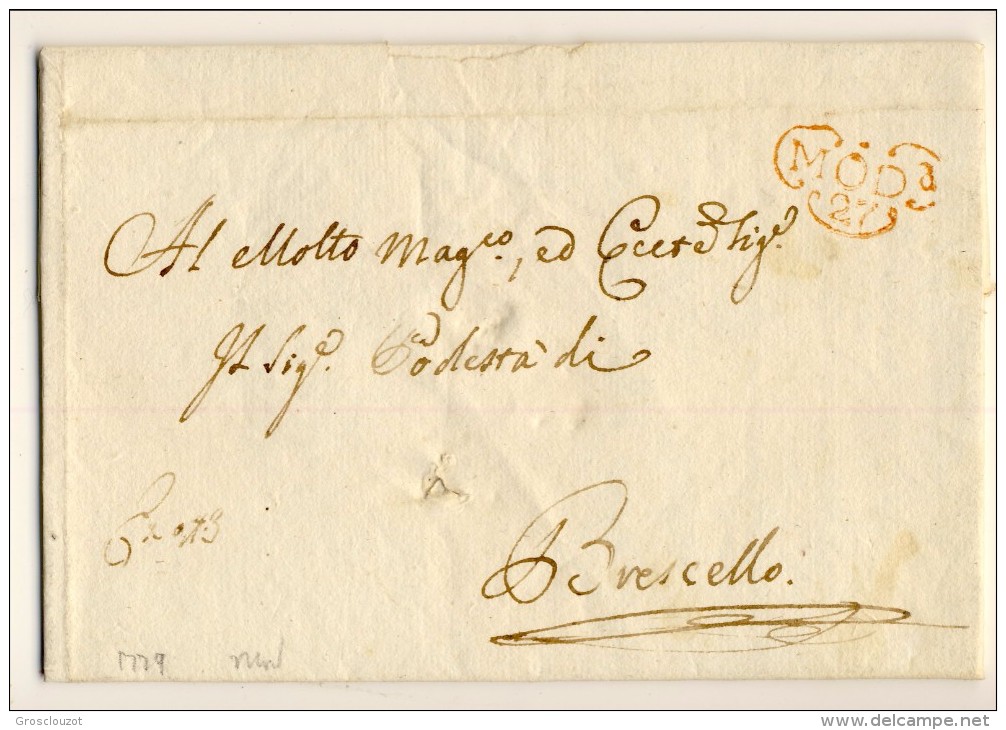 MOD.a
27
Al Molto Mag.co, ed Ecc.te Sig.e
Il Sig.e Podestà di
Brescello.
1779
Grosclouzot
www.delcampe.net